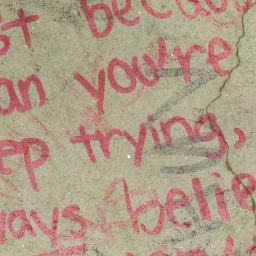 st becau
an you're
ep trying,
ways belie